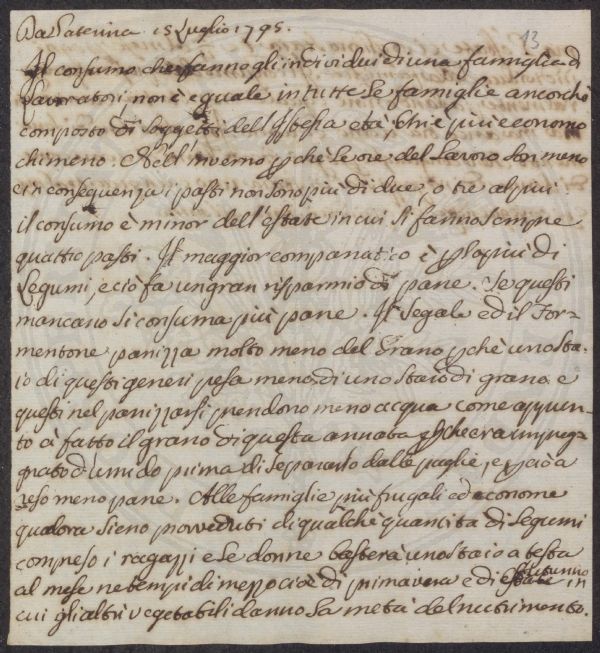 Da Laterina 15 Luglio 1795.
13
Il consumo che fanno gli individui di una famiglia di
Lavoratori non è eguale in tutte le famiglie ancorchè
composto di soggetti dell'istessa età, chi è più economo
chi meno. Nell'inverno pchè le ore del Lavoro son meno
e in conseguenza i pasti non sono più di due, o tre al più
il consumo è minor dell'estate in cui si fanno sempre
quattro pasti. Il maggior companatico è p lo più di
Legumi, e ciò fa un gran risparmio di pane. Se questi
mancano si consuma più pane. Il segale ed il For=
mentone panizza molto meno del Grano pchè uno sta=
io di questi generi pesa meno di uno staio di grano e
questi nel panizzarsi prendono meno acqua come appun=
to à fatto il grano di questa annata pchè era impreg=
grato d'umido prima di separarlo dalle paglie, e pciò à
reso meno pane. Alle famiglie più frugali ed econome
qualora sieno provveduti di qualche quantità di Legumi
compreso i ragazzi e le donne basterà uno staio a testa
al mese ne tempi di mezzo cioè di primavera e di autunno in
cui gli altri vegetabili danno la metà del nutrimento.